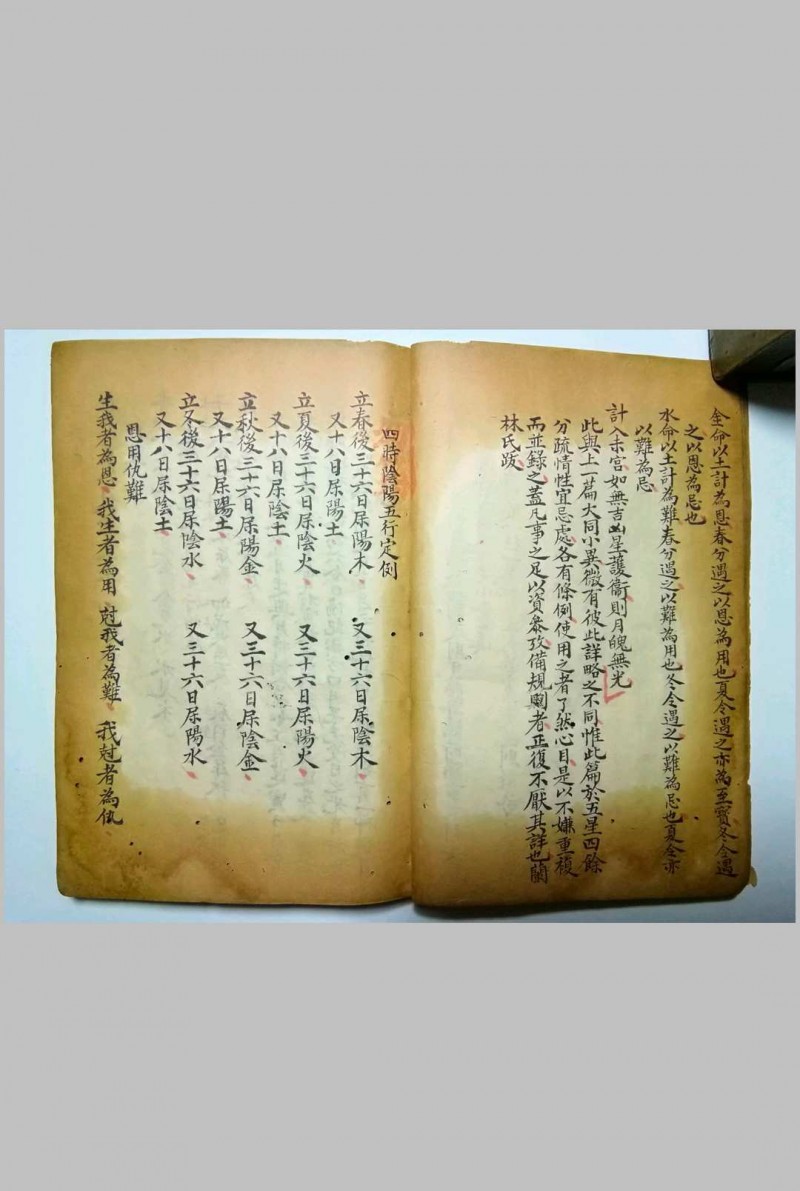 金命以土計為恩春分遇之以恩為用也夏令遇之亦為至寶冬令遇
之以恩為忌也
水命以土計為難春分遇之以難為用也冬令遇之以難為忌也夏令亦
以難為忌
計入未宮如無吉凶星護衛則月魄無光
此與上一篇大同小異微有彼此詳略之不同惟此篇於五星四餘
分疏情性宜忌處各有條例使用之者了然心目是以不嫌重複
而並錄之蓋凡事之足以資叅攷備規䦨者正復不厭其詳也蘭
林氏跋
四時陰陽五行定例
立春後三十六日𡱈陽木 又三十六日𡱈陰木
又十八日𡱈陽土
立夏後三十六日𡱈陰火 又三十六日𡱈陽火
又十八日𡱈陰土
立秋後三十六日𡱈陽金 又三十六日𡱈陰金
又十八日𡱈陽土
立冬後三十六日𡱈陰水 又三十六日𡱈陽水
又十八日𡱈陰土
恩用仇難
生我者為恩 我生者為用 尅我者為難 我尅者為仇